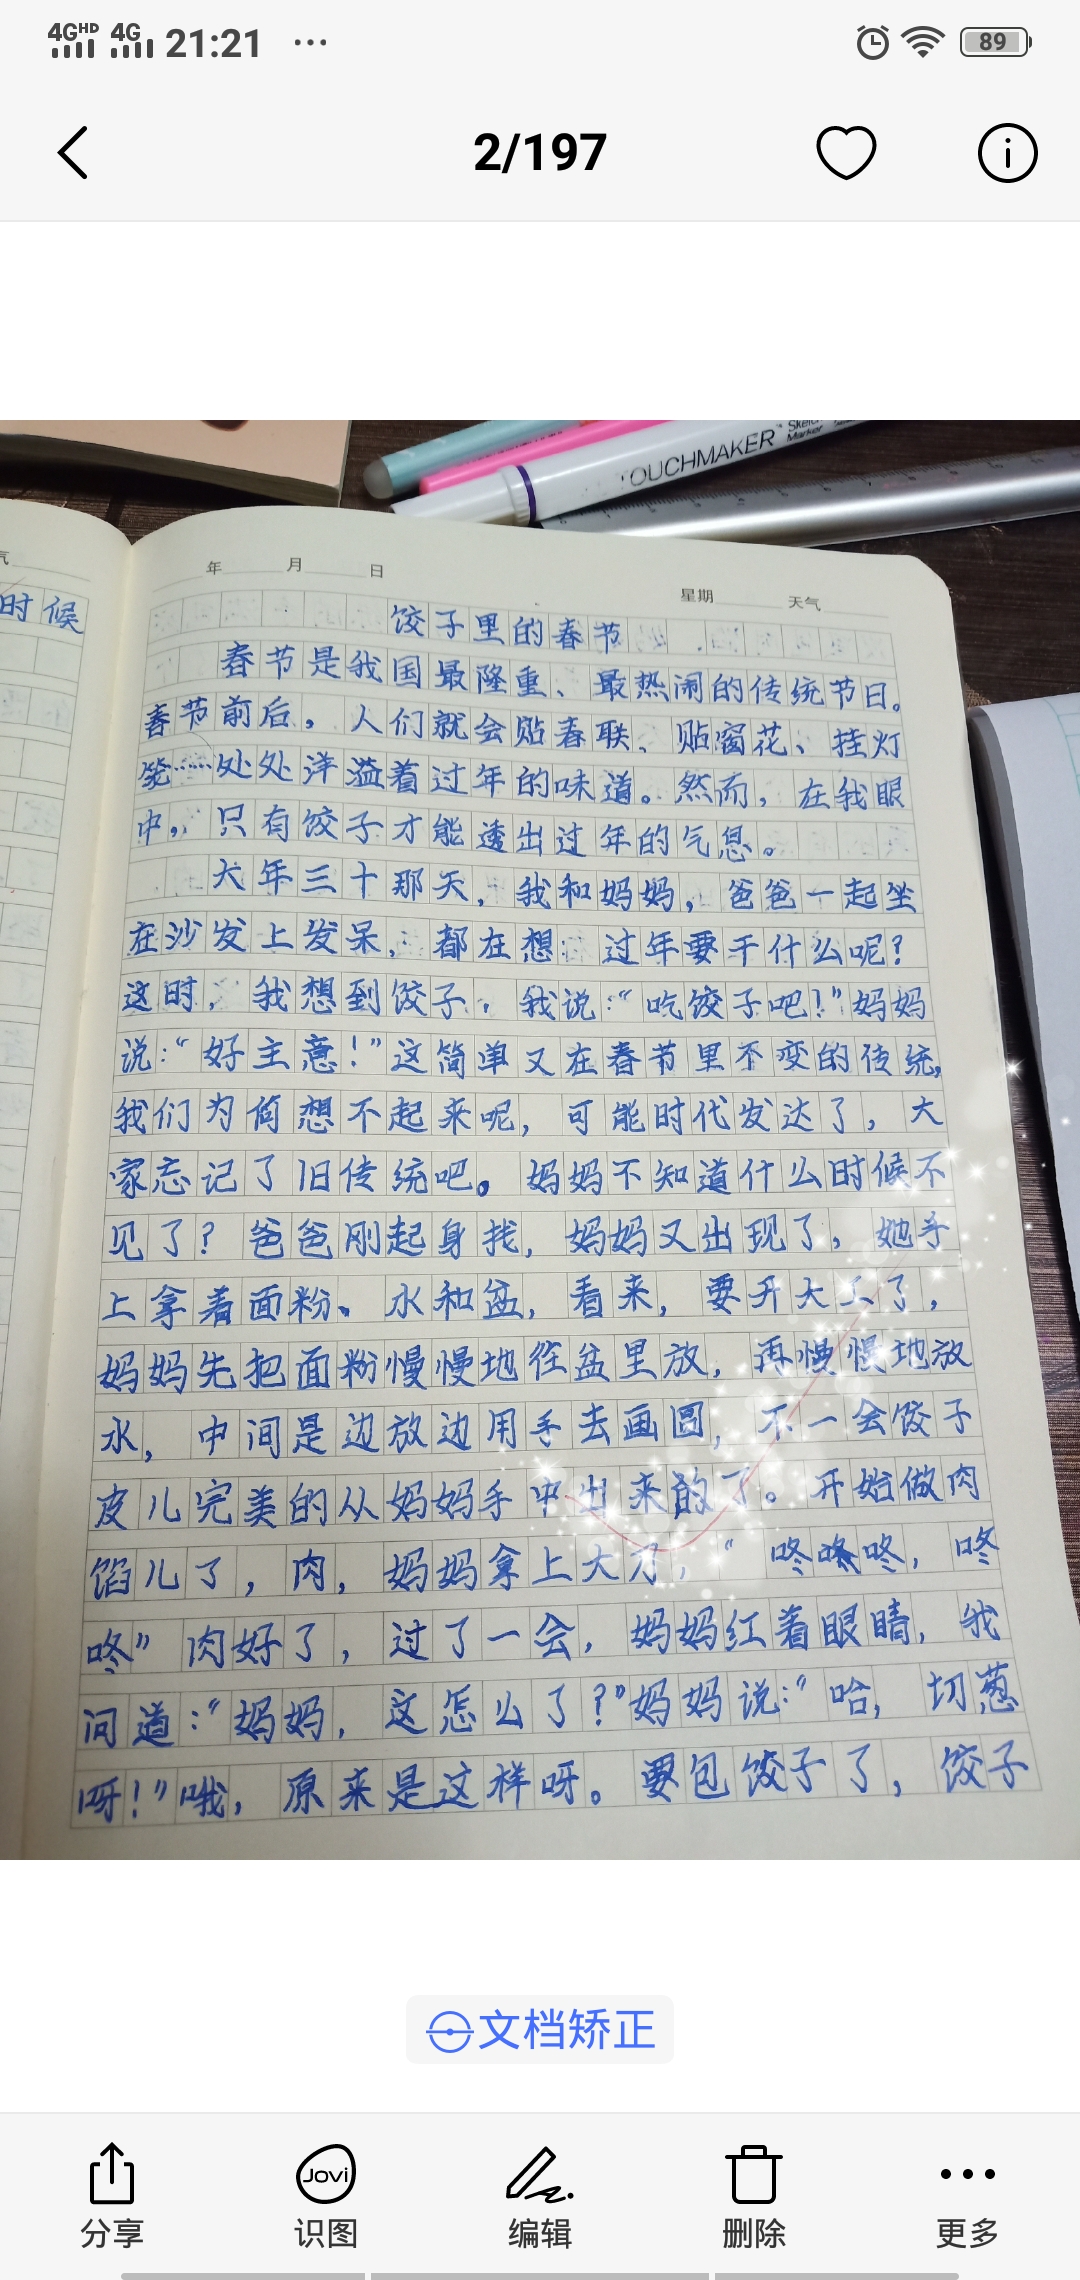 4GHD 4G 21:21 ... 89
2/197
TOUCHMAKER Sketch Marker
气
年 月 日
星期 天气
时候
饺子里的春节
春节是我国最隆重、最热闹的传统节日。
春节前后，人们就会贴春联、贴窗花、挂灯
笼……处处洋溢着过年的味道。然而，在我眼
中，只有饺子才能透出过年的气息。
大年三十那天，我和妈妈，爸爸一起坐
在沙发上发呆，都在想：过年要干什么呢？
这时，我想到饺子，我说：“吃饺子吧！”妈妈
说：“好主意！”这简单又在春节里不变的传统，
我们为何想不起来呢，可能时代发达了，大
家忘记了旧传统吧。妈妈不知道什么时候不
见了？爸爸刚起身找，妈妈又出现了，她手
上拿着面粉、水和盆，看来，要开大工了，
妈妈先把面粉慢慢地往盆里放，再慢慢地放
水，中间是边放边用手去画圆，不一会饺子
皮儿完美的从妈妈手中出来的了。开始做肉
馅儿了，肉，妈妈拿上大刀，“咚咚咚，咚
咚”肉好了，过了一会，妈妈红着眼睛，我
问道：“妈妈，这怎么了？”妈妈说：“哈，切葱
呀！”哦，原来是这样呀。要包饺子了，饺子
文档矫正
Jovi
分享 识图 编辑 删除 更多